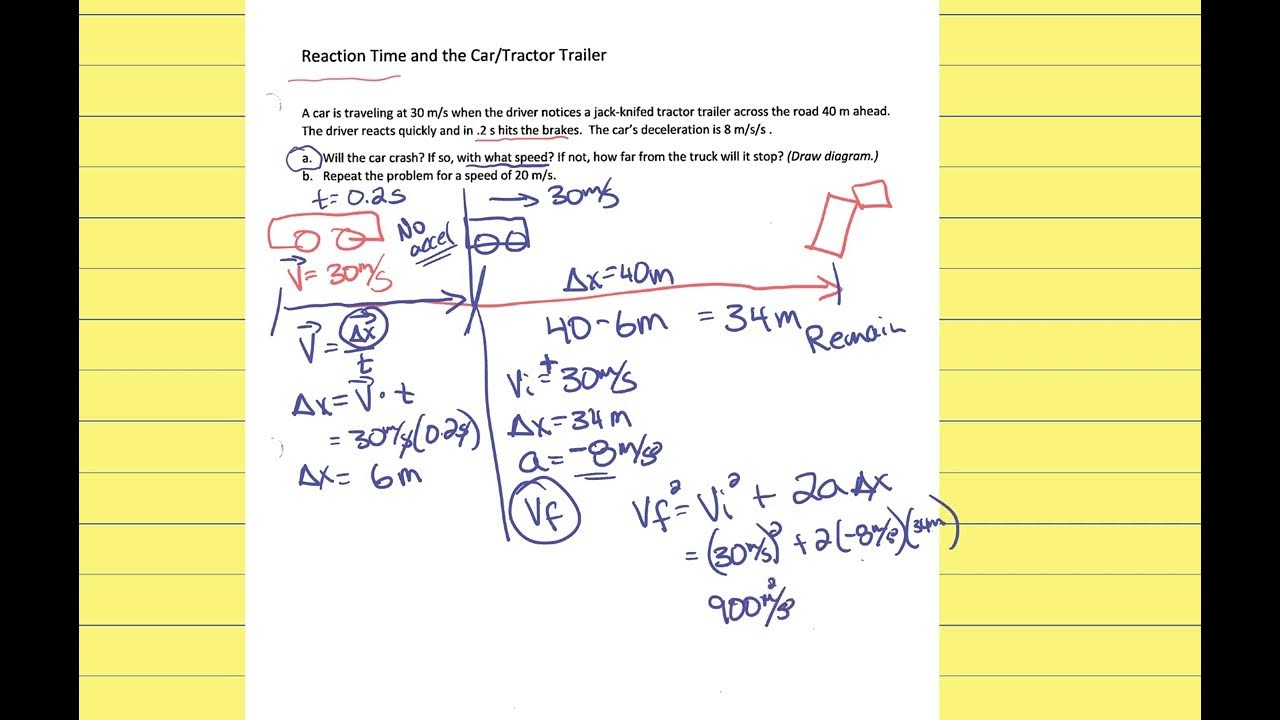 Reaction Time and the Car/Tractor Trailer
A car is traveling at 30 m/s when the driver notices a jack-knifed tractor trailer across the road 40 m ahead.
The driver reacts quickly and in .2 s hits the brakes. The car's deceleration is 8 m/s/s .
a. Will the car crash? If so, with what speed? If not, how far from the truck will it stop? (Draw diagram.)
b. Repeat the problem for a speed of 20 m/s.
t= 0.2s
→ 30m/s
No
accel
V⃗= 30m/s
Δx=40m
40-6m = 34m
Remain
V⃗ = Δx⃗/t
Δx= V⃗·t
= 30m/s(0.2s)
Δx= 6m
Vi = +30m/s
Δx=34m
a=-8m/s²
Vf
Vf² = Vi² + 2aΔx
= (30m/s)² + 2(-8m/s²)(34m)
900m²/s²